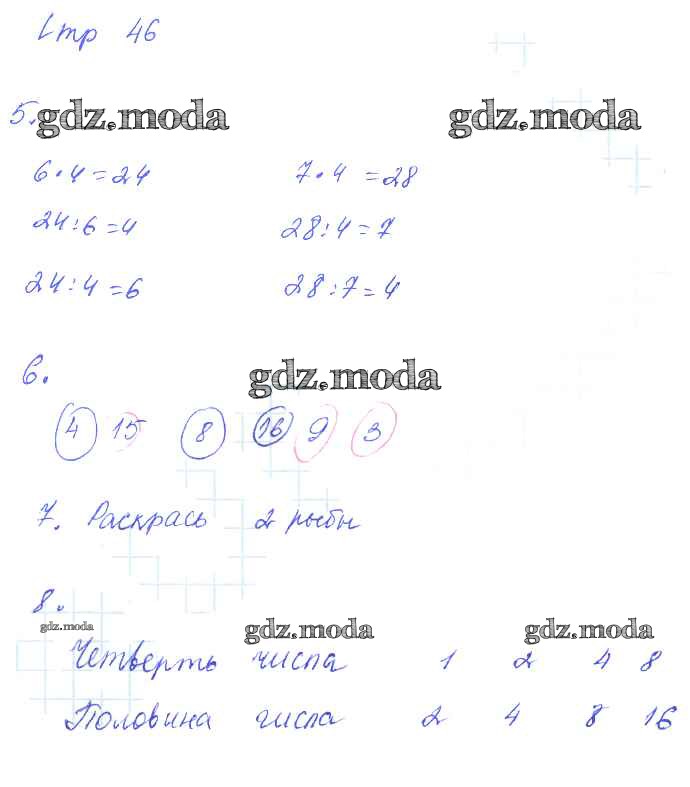 Стр 46
5.
gdz.moda gdz.moda
6·4=24 7·4=28
24:6=4 28:4=7
24:4=6 28:7=4
6.
gdz.moda
4 15 8 16 9 3
7. Раскрась 2 рыбы
8.
gdz.moda gdz.moda gdz.moda
Четверть числа 1 2 4 8
Половина числа 2 4 8 16